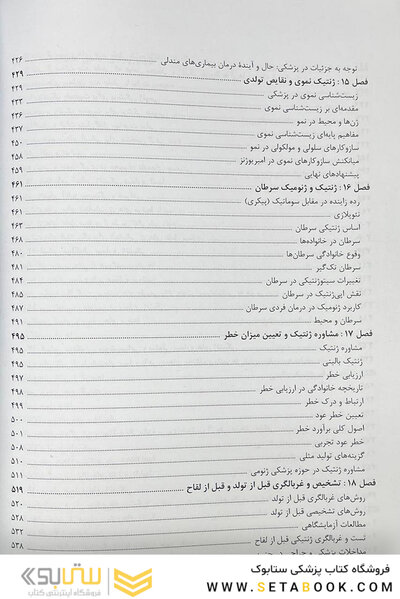 توجه به جزئیات در پزشکی: حال و آیندهٔ درمان بیماری‌های مندلی ۴۲۶
فصل ۱۵: ژنتیک نموی و نقایص تولدی ۴۲۹
زیست‌شناسی نموی در پزشکی ۴۲۹
مقدمه‌ای بر زیست‌شناسی نموی ۴۳۳
ژن‌ها و محیط در نمو ۴۳۶
مفاهیم پایه‌ای زیست‌شناسی نموی ۴۳۷
سازوکارهای سلولی و مولکولی در نمو ۴۵۰
میانکنش سازوکارهای نموی در امبریوژنز ۴۵۸
پیشنهادهای نهایی ۴۵۹
فصل ۱۶: ژنتیک و ژنومیک سرطان ۴۶۱
رده زاینده در مقابل سوماتیک (پیکری) ۴۶۱
نئوپلازی ۴۶۱
اساس ژنتیکی سرطان ۴۶۳
سرطان در خانواده‌ها ۴۶۸
وقوع خانوادگی سرطان‌ها ۴۸۰
سرطان تک‌گیر ۴۸۱
تغییرات سیتوژنتیکی در سرطان ۴۸۴
نقش اپی‌ژنتیک در سرطان ۴۸۵
کاربرد ژنومیک در درمان فردی سرطان ۴۸۷
سرطان و محیط ۴۹۱
فصل ۱۷: مشاوره ژنتیک و تعیین میزان خطر ۴۹۵
مشاوره ژنتیک ۴۹۵
ژنتیک بالینی ۴۹۵
ارزیابی خطر ۴۹۷
تاریخچه خانوادگی در ارزیابی خطر ۴۹۸
ارتباط و درک خطر ۴۹۹
تعیین خطر عود ۵۰۰
اصول کلی برآورد خطر ۵۰۰
خطر عود تجربی ۵۰۸
گزینه‌های تولید مثلی ۵۱۰
مشاوره ژنتیک در حوزه پزشکی ژنومی ۵۱۱
فصل ۱۸: تشخیص و غربالگری قبل از تولد و قبل از لقاح ۵۱۹
روش‌های غربالگری قبل از تولد ۵۲۰
روش‌های تشخیصی قبل از تولد ۵۲۷
مطالعات آزمایشگاهی ۵۳۲
تست و غربالگری ژنتیکی قبل از لقاح ۵۳۸
مداخلات پزشکی و جراحی در
فروشگاه کتاب پزشکی ستابوک
WWW.SETABOOK.COM
ستابوک
فروشگاه اینترنتی کتاب